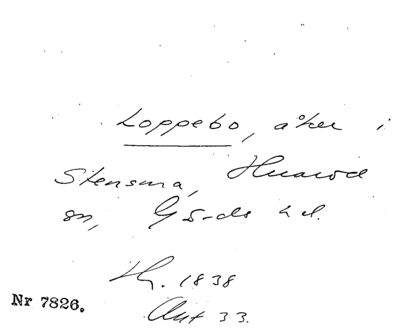 Loppebo, åker i
Stensma, Huaröd
sn, Gärds hd.
Hy. 1838
Akt 33.
Nr 7826.